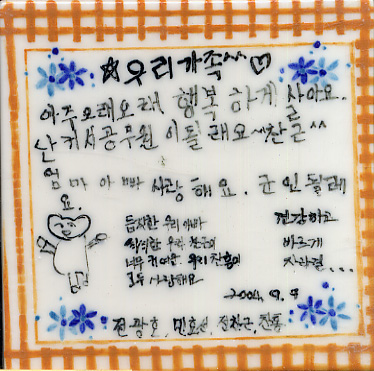 ☆우리가족^^♡
아주오래오래 행복하게 살아요.
난 커서공무원이될래요~찬근^^
엄마아빠 사랑해요. 군인될래
요.
듬직한 우리 아빠
우리
너무 귀여운 우리 찬홍이
모두 사랑해요
건강하고
바르게
자라길...
2004. 9. 9
전광호, 민호선, 전찬근, 찬홍